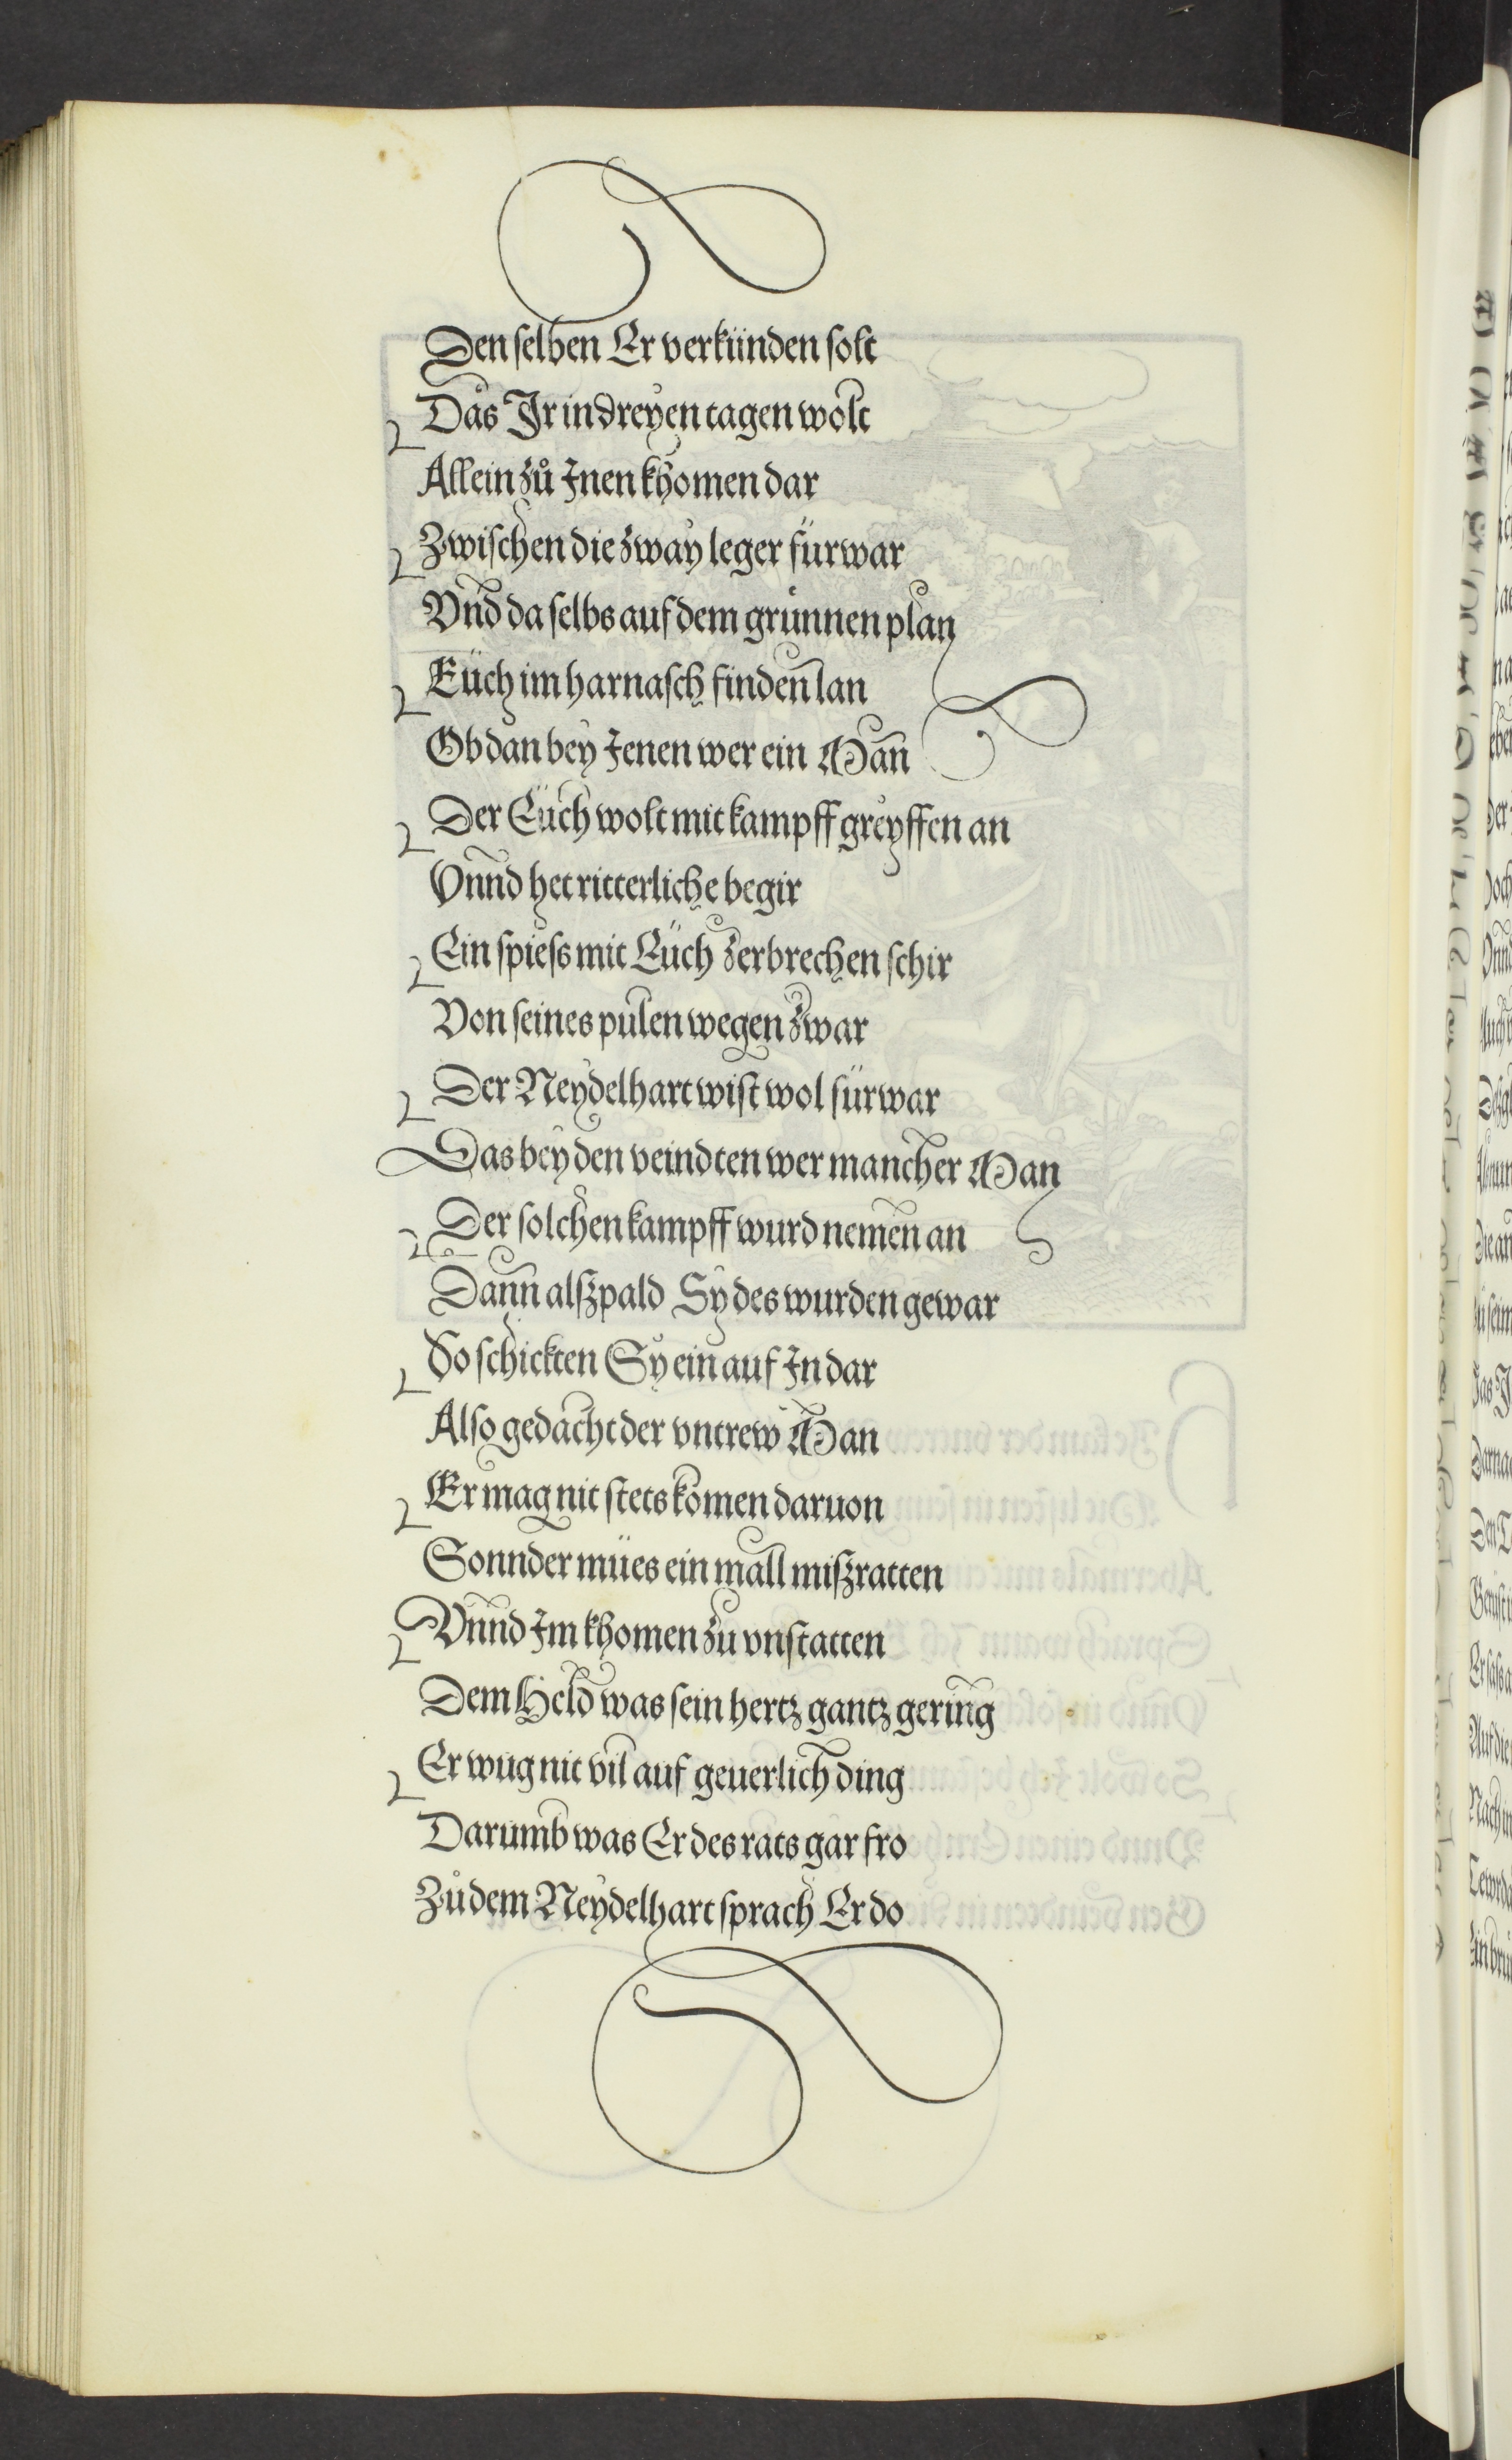 Den selben Er verkünden solt
Das Jr in dreyen tagen wolt
Allein zů Jnen khomen dar
Zwischen die zway leger fürwar
Vnd da selbs auf dem grunnen plan
Eüch im harnasch finden lan
Ob dan bey Jenen wer ein Man
Der Eüch wolt mit kampff greyffen an
Vnnd het ritterliche begir
Ein spiess mit Eüch zerbrechen schir
Von seines pulen wegen zwar
Der Neydelhart wist wol fürwar
Das bey den veindten wer mancher Man
Der solchen kampff wurd nemen an
Dann alszpald Sy des wurden gewar
So schickten Sy ein auf Jn dar
Also gedacht der vntrew Man
Er mag nit stets komen daruon
Sonnder mües ein mall miszratten
Vnnd Jm khomen zu vnstatten
Dem Held was sein hertz gantz gering
Er wug nit vil auf geuerlich ding
Darumb was Er des rats gar fro
Zů dem Neydelhart sprach Er do